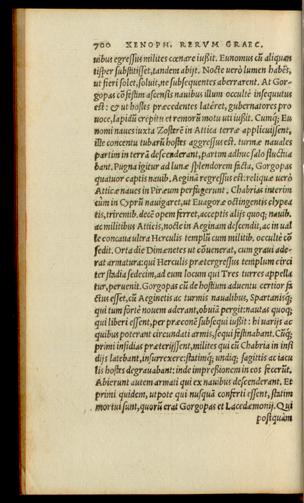 700 XENOPH. RERVM GRAEC.
uibus egressus milites cœnare iußit. Eunomus cũ aliquan
tisper substitisset, tandem abijt. Nocte uerò lumen habẽs,
ut fieri solet, soluit, ne subsequentes aberrarent. At Gor-
gopas cõfestim ascensis nauibus illum occultè insequutus
est: & ut hostes præcedentes latéret, gubernatores pro
uoce, lapidũ crepitu et remorũ motu uti iußit. Cumq; Eu
nomi naues iuxta Zostrẽ in Attica terræ applicuissent,
ille concentu tubarũ hostes aggressus est. turmæ nauales
partim in terrã descenderant, partim adhuc salo fluctua
bant. Pugna igitur ad lunæ splendorem facta, Gorgopas
quatuor captis nauib. Aeginã regressus est: reliquæ uerò
Atticæ naues in Piræum perfugerunt. Chabrias interim
cùm in Cyprũ nauigaret, ut Euagoræ octingentis clypea
tis, triremib. decẽ opem ferret, acceptis alijs quoq; nauib.
ac militibus Atticis, nocte in Aeginam descendit, ac in ual
le concaua ultra Herculis templũ cum militib. occultè cõ
sedit. Orta die Dimænetes ut cõuenerat, cum graui ade-
rat armatura: qui Herculis prætergressus templum circi
ter stadia sedecim, ad eum locum qui Tres turres appella
tur, peruenit. Gorgopas cũ de hostium aduentu certior fa
ctus esset, cũ Aeginetis ac turmis naualibus, Spartanisq;
qui tum fortè nouem aderant, obuiã pergit: nautas quoq;
qui liberi essent, per præconẽ subsequi iußit: hi uarijs ac
quibus poterant circundati armis, sequi festinabant. Cũq;
primi insidias præterijssent, milites qui cũ Chabria in insi
dijs latebant, insurrexere: statimq; undiq; sagittis ac iacu
lis hostes degrauabant: inde impreßionem in eos fecerũt.
Abierunt autem armati qui ex nauibus descenderant. Et
primi quidem, utpote qui nusquã conferti essent, statim
mortui sunt, quorũ erat Gorgopas et Lacedæmonij. Qui
postquàm